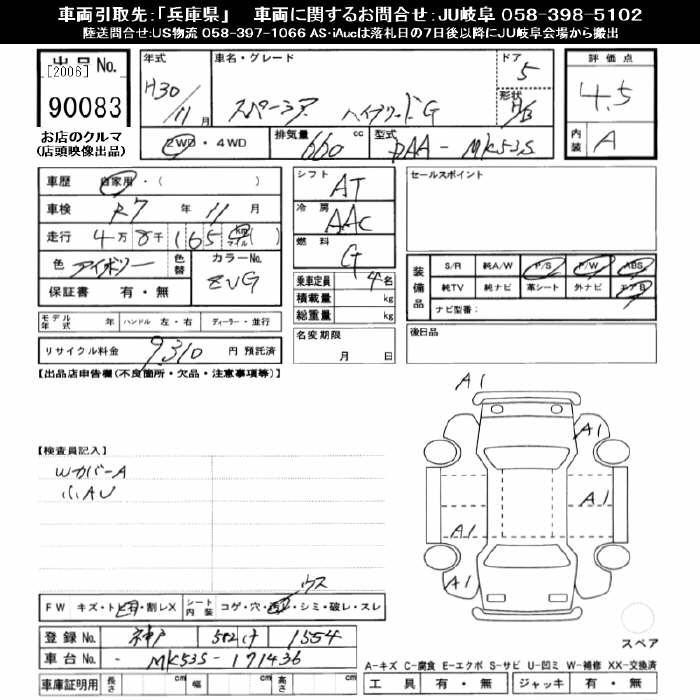 車両引取先：「兵庫県」　車両に関するお問合せ：JU岐阜 058-398-5102
陸送問合せ：US物流 058-397-1066 AS・iAucは落札日の7日後以降にJU岐阜会場から搬出
出品No.
[2006]
90083
お店のクルマ
(店頭映像出品)
年式
H30/11月
車名・グレード
スペーシア ハイブリッドG
ドア
5
形状
H/B
2WD・4WD
排気量 660 cc
型式 DAA-MK53S
評価点
4.5
内装 A
車歴 自家用・( )
車検 R7年 11月
走行 4万8千165 km マイル ( )
色 アイボリー 色替
カラーNo. ZVG
保証書 有・無
モデル年式 年 ハンドル 左・右 ディーラー・並行
リサイクル料金 9,310 円 預託済
シフト AT
冷房 AAC
燃料 G
乗車定員 4名
積載量 kg
総重量 kg
名変期限
月 日
セールスポイント
装備品
S/R 純A/W P/S P/W ABS
純TV 純ナビ 革シート 外ナビ エアB
ナビ型番：
後日品
【出品店申告欄(不良箇所・欠品・注意事項等)】
【検査員記入】
WカバーA
小AU
A1
A1
A1
A1
A1
ウス
FW キズ・トビ石・割レX
シート内装 コゲ・穴・汚レ・シミ・破レ・スレ
登録No. 神戸 582 け 1554
車台No. - MK53S-171436
車庫証明用 長さ cm 幅 cm 高さ cm
スペア
A-キズ C-腐食 E-エクボ S-サビ U-凹ミ W-補修 XX-交換済
工具 有・無 ジャッキ 有・無